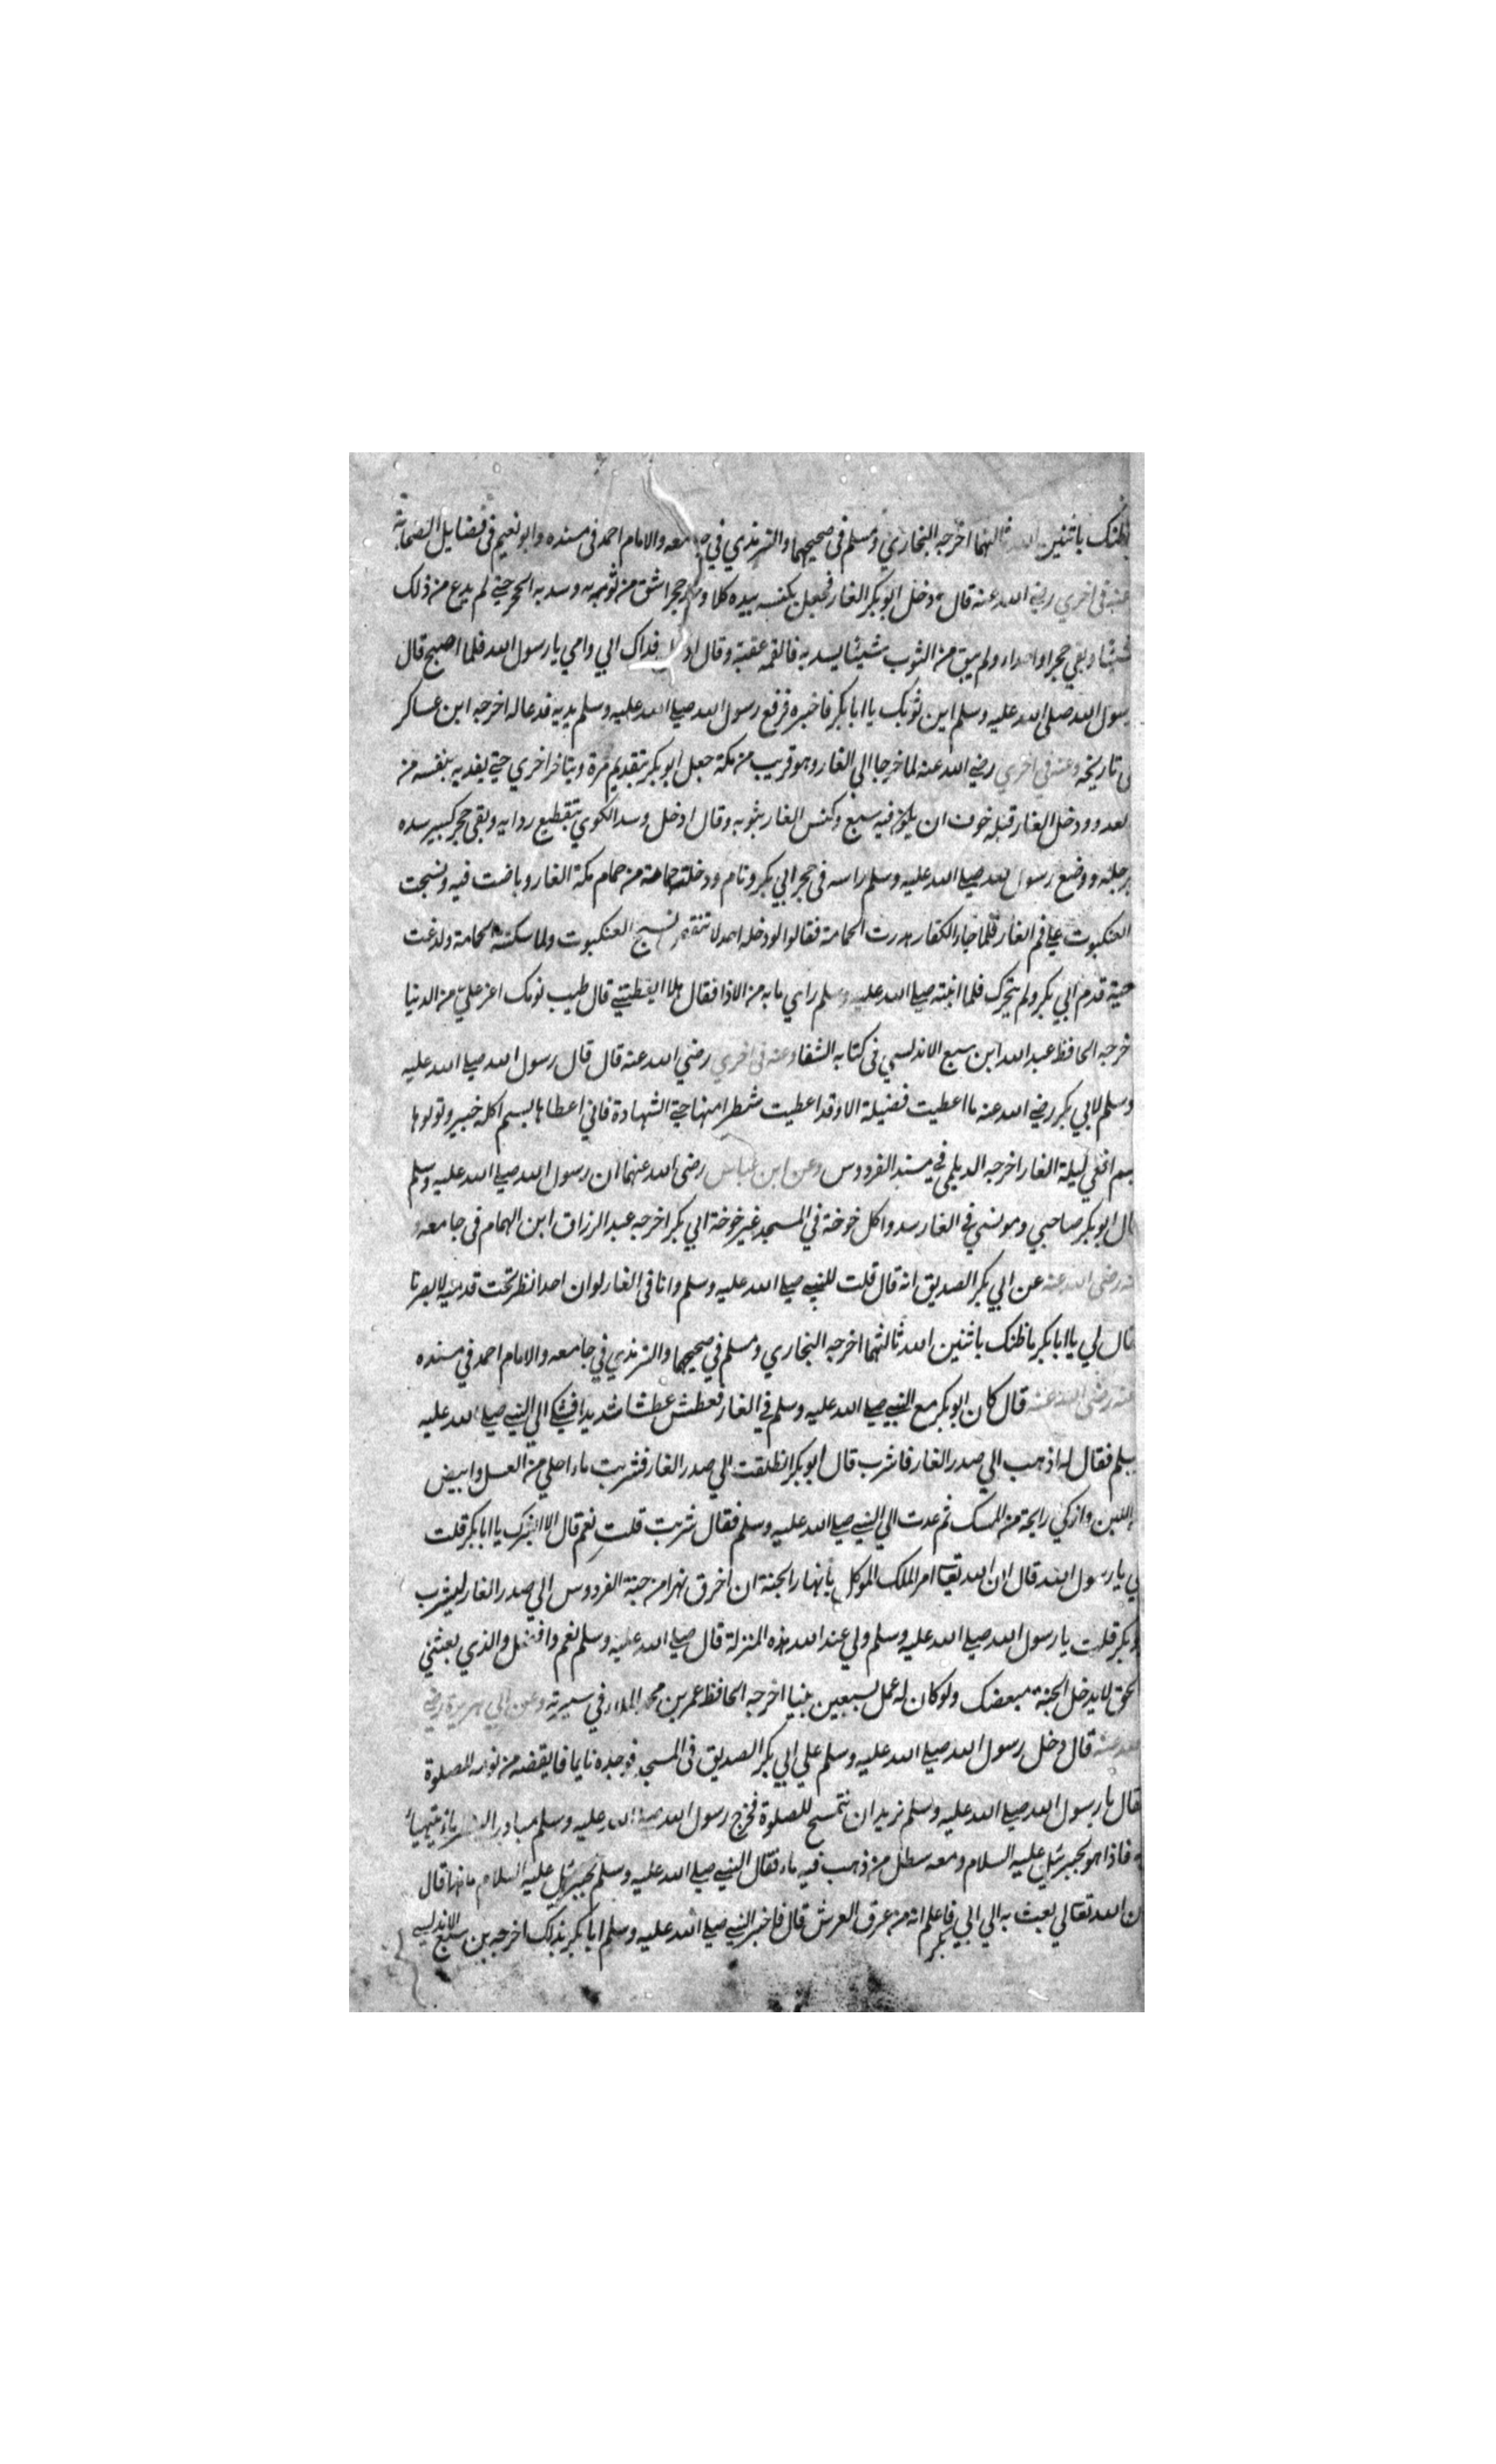 ظنك باثنين الله ثالثهما اخرجه البخاري ومسلم في صحيحهما والترمذي في جامعه والامام احمد في مسنده وابو نعيم في فضايل الصحابة
عنه في اخري رضي الله عنه قال دخل ابو بكر الغار فجعل يكنسه بيده كلما وجد حجرا شق من ثوبه وسد به الحجر حتي لم يدع من ذلك
شيئا وبقي حجرا واحدا ولم يبق من الثوب شيئا يسد به فالقمه عقبه وقال ادخل فداك ابي وامي يا رسول الله فلما اصبح قال
رسول الله صلي الله عليه وسلم اين ثوبك يا ابا بكر فاخبره فرفع رسول الله صلي الله عليه وسلم يديه فدعا له اخرجه ابن عساكر
في تاريخه وعنه في اخري رضي الله عنه لما خرجا الي الغار وهو قريب من مكة جعل ابو بكر يتقديم مرة ويتاخر اخري حتي يفديه بنفسه من
لعدو ودخل الغار قبله خوف ان يكون فيه سبع وكنس الغار بثوبه وقال ادخل وسد الكوي بتقطيع ردايه وبقي حجر كبير سده
برجله ووضع رسول الله صلي الله عليه وسلم راسه في حجر ابي بكر ونام ودخلت حمامة من حمام مكة الغار وباضت فيه ونسجت
العنكبوت علي فم الغار فلما جاء الكفار هدرت الحمامة فقالوا لو دخله احد لا نسيج العنكبوت ولما سكنت الحمامة ولدغت
حية قدم ابي بكر ولم يتحرك فلما انتبه صلي الله عليه وسلم راي ما به من الاذا فقال هلا ايقظتني قال طيب نومك اعز علي من الدنيا
خرجه الحافظ عبد الله ابن سبع الاندلسي في كتابه الشفا وعنه في اخري رضي الله عنه قال قال رسول الله صلي الله عليه
وسلم لابي بكر رضي الله عنه ما اعطيت فضيلة الا وقد اعطيت شطرا منها حتي الشهادة فاني اعطاها بسم اكلة خيبر وتولوها
بسم افعي ليلة الغار اخرجه الديلمي في مسند الفردوس وعن ابن عباس رضي الله عنهما ان رسول الله صلي الله عليه وسلم
قال ابو بكر صاحبي ومونسي في الغار سدوا كل خوخة في المسجد غير خوخة ابي بكر اخرجه عبد الرزاق ابن الهمام في جامعه و
عنه رضي الله عنه عن ابي بكر الصديق انه قال قلت للنبي صلي الله عليه وسلم وانا في الغار لو ان احدا نظر تحت قدميه لابصرنا
قال لي يا ابا بكر ما ظنك باثنين الله ثالثهما اخرجه البخاري ومسلم في صحيحهما والترمذي في جامعه والامام احمد في مسنده
عنه رضي الله عنه قال كان ابو بكر مع النبي صلي الله عليه وسلم في الغار فعطش عطشا شديدا فشكي الي النبي صلي الله عليه
وسلم فقال له اذهب الي صدر الغار فاشرب قال ابو بكر انطلقت الي صدر الغار فشربت ماء احلي من العسل وابيض
من اللبن وازكي رايحة من المسك ثم عدت الي النبي صلي الله عليه وسلم فقال شربت قلت نعم قال الا ابشرك يا ابا بكر قلت
بلي يا رسول الله قال ان الله تعالي امر الملك الموكل بانهار الجنة ان اخرق نهرا من جنة الفردوس الي صدر الغار ليشرب
ابو بكر قلت يا رسول الله صلي الله عليه وسلم ولي عند الله هذه المنزلة قال صلي الله عليه وسلم نعم وافضل والذي بعثني
بالحق لا يدخل الجنة مبغضك ولو كان له عمل سبعين نبيا اخرجه الحافظ عمر بن محمد الملاء في سيرته وعن ابي هريرة رضي
الله عنه قال دخل رسول الله صلي الله عليه وسلم علي ابي بكر الصديق في المسجد فوجده نايما فايقضه من نومه للصلوة
فقال يا رسول الله صلي الله عليه وسلم نريد ان نتمسح للصلوة فخرج رسول الله صلي الله عليه وسلم مبادرا
فاذا هو بجبرئيل عليه السلام ومعه سطل من ذهب فيه ماء فقال النبي صلي الله عليه وسلم لجبرئيل عليه السلام ما هذا قال
ان الله تعالي بعث به الي ابي بكر فاعلم انه من عرق العرش قال فاخبر النبي صلي الله عليه وسلم ابا بكر بذلك اخرجه بن سبع الاندلسي